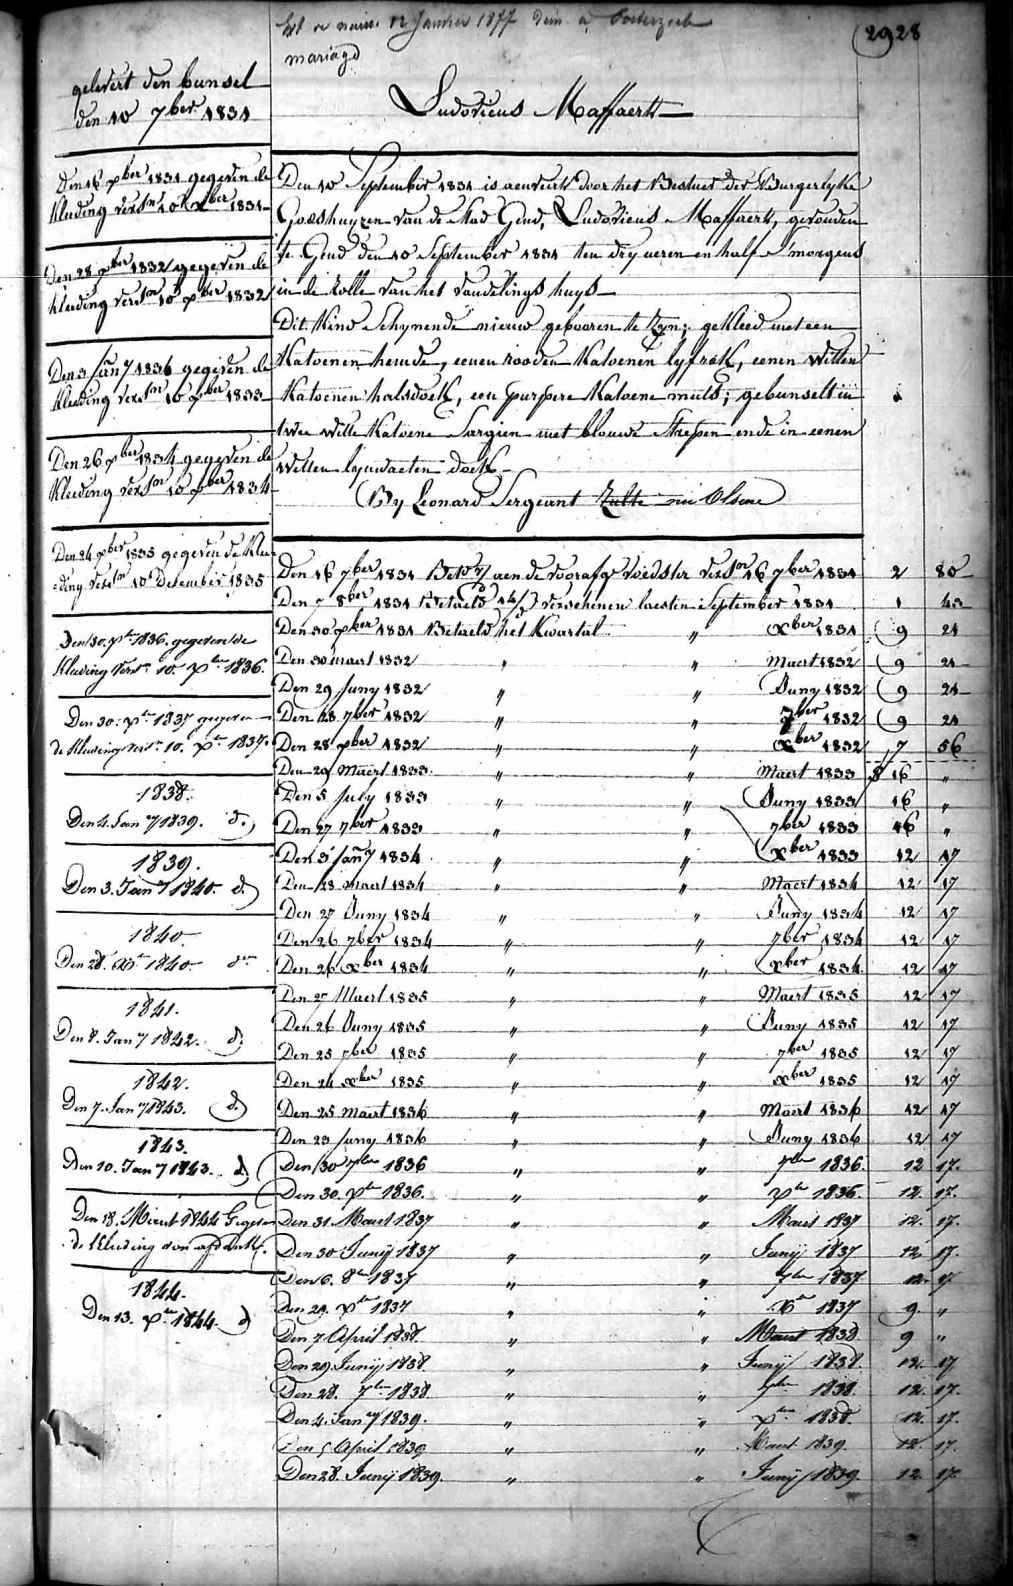 Est ve maire 12 Janvier 1877 dom. à Oosterzeele
mariage
2928
gelevert den bunsel
den 10 7ber 1831
Ludovicus Maffaert
Den 16 xber 1831 gegeven de
kleeding versn 10 xber 1831
Den 28 xber 1832 gegeven de
kleeding versn 10 xber 1832
Den 3 Jany 1834 gegeven de
kleeding versn 10 xber 1833
Den 26 xber 1834 gegeven de
kleeding versn 10 xber 1834
Den 24 xber 1835 gegeven de klee
ding versn 10 December 1835
Den 30. xr 1836. gegeven de
kleeding versn 10. xber 1836.
Den 30. xr 1837 gegeven
de kleeding versn 10. xr 1837.
1838.
Den 4. Jany 1839. do
1839.
Den 3. Jany 1840. do
1840
Den 28. Xr 1840. do
1841.
Den 8. Jany 1842. do
1842.
Den 7. Jany 1843. do
1843.
Den 10. Jany 1843. do
Den 18. Meert 1844 Gegeven
de kleeding van
1844.
Den 13. xr 1844. do
Den 10 September 1831 is aenveert door het Bestuer der Burgerlyke
Godshuyzen van de Stad Gend, Ludovicus Maffaert, gevonden
te Gend den 10 September 1831 ten dry ueren en half s'morgens
in de rolle van het vondelings huys
Dit Kind Schynende nieuw gebooren te zyn; gekleed met een
Katoenen hemde, eenen rooden Katoenen lyfrok, eenen witten
Katoenen halsdoek, een purpere Katoene muts; gebunselt in
twee witte Katoene Sargien met blouwe Strepen ende in eenen
witten lynwaeten doek
By Leonard Sergeant Zulte nu Olsene
Den 16 7ber 1831 Bet. aen de voorafge Voedster versn 16 7ber 1831 2 80
Den 7 8ber 1831 Betaeld verschenen laesten September 1831 1 43
Den 30 xber 1831 Betaeld het Kwartal " xber 1831 9 21
Den 30 maert 1832 " " Maert 1832 9 21
Den 29 Juny 1832 " " Juny 1832 9 21
Den 28 7ber 1832 " " 7ber 1832 9 21
Den 28 xber 1832 " " xber 1832 7 56
Den 29 Maert 1833 " " Maert 1833 16 "
Den 5 July 1833 " " Juny 1833 16 "
Den 27 7ber 1833 " " 7ber 1833 16 "
Den 3 Jany 1834 " " xber 1833 12 17
Den 28 maert 1834 " " Maert 1834 12 17
Den 27 Juny 1834 " " Juny 1834 12 17
Den 26 7ber 1834 " " 7ber 1834 12 17
Den 26 xber 1834 " " xber 1834 12 17
Den 27 Maert 1835 " " Maert 1835 12 17
Den 26 Juny 1835 " " Juny 1835 12 17
Den 25 7ber 1835 " " 7ber 1835 12 17
Den 24 xber 1835 " " xber 1835 12 17
Den 25 maert 1836 " " Maert 1836 12 17
Den 23 Juny 1836 " " Juny 1836 12 17
Den 30 7ber 1836 " " 7ber 1836. 12 17.
Den 30. xr 1836. " " xr 1836. 12. 17.
Den 31. Maert 1837 " " Maert 1837 12. 17.
Den 30 Junij 1837 " " Junij 1837 12. 17.
Den 6. 8r 1837 " " 7ber 1837 12. 17
Den 29. xr 1837 " " Xr 1837 9. "
Den 7. April 1838. " " Maert 1838 9 "
Den 29 Junij 1838 " " Junij 1838. 12. 17
Den 28. 7ber 1838 " " 7ber 1838. 12. 17.
Den 4. Jany 1839. " " xr 1838. 12. 17.
Den 5 April 1839 " " Maert 1839. 12. 17.
Den 28. Junij 1839. " " Junij 1839. 12. 17.